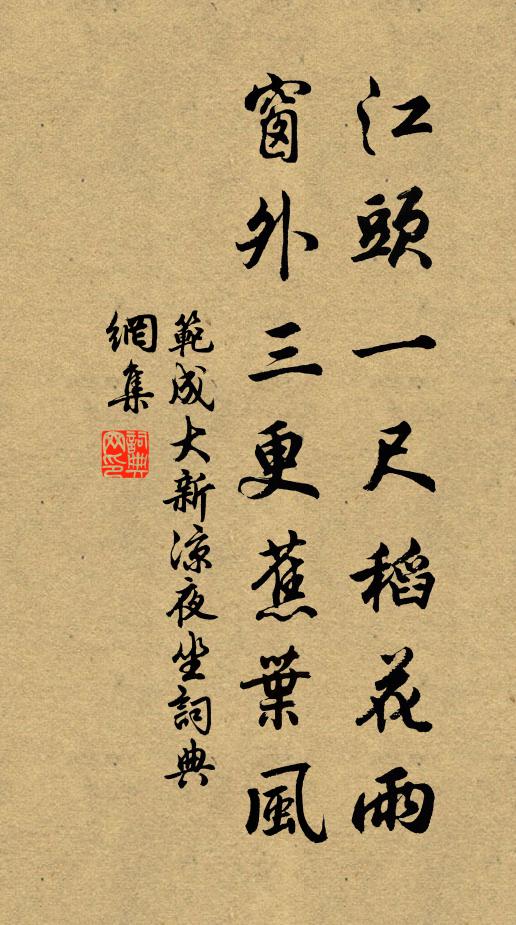 江頭一尺稻花雨
窗外三更蕉葉風
範成大新涼夜坐詞典
網集
詞典网印